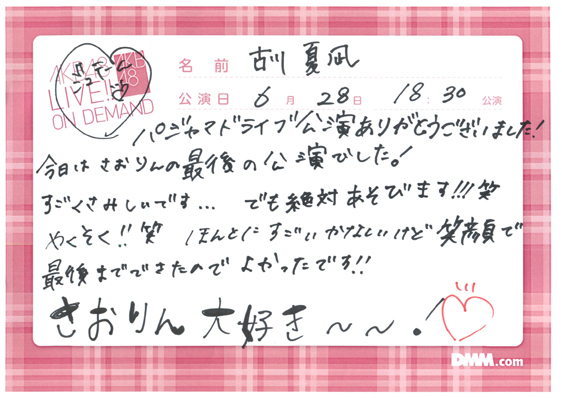 AKB48
LIVE!!
ON DEMAND
AKB
48
名前 古川夏凪
公演日 6月28日 18:30公演
パジャマドライブ公演ありがとうございました!
今日はさおりんの最後の公演でした。!
すごくさみしいです... でも絶対あそびます!!!笑
やくそく!!笑 ほんとにすごいかなしいけど笑顔で
最後までできたのでよかったです!!
さおりん大好き〜〜!
DMM.com